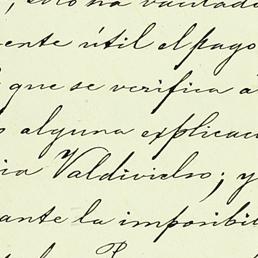 , sólo ha
ente útil el pago
que se verifica á
alguna explicac
ia Valdivielso; y
ante la imposibil